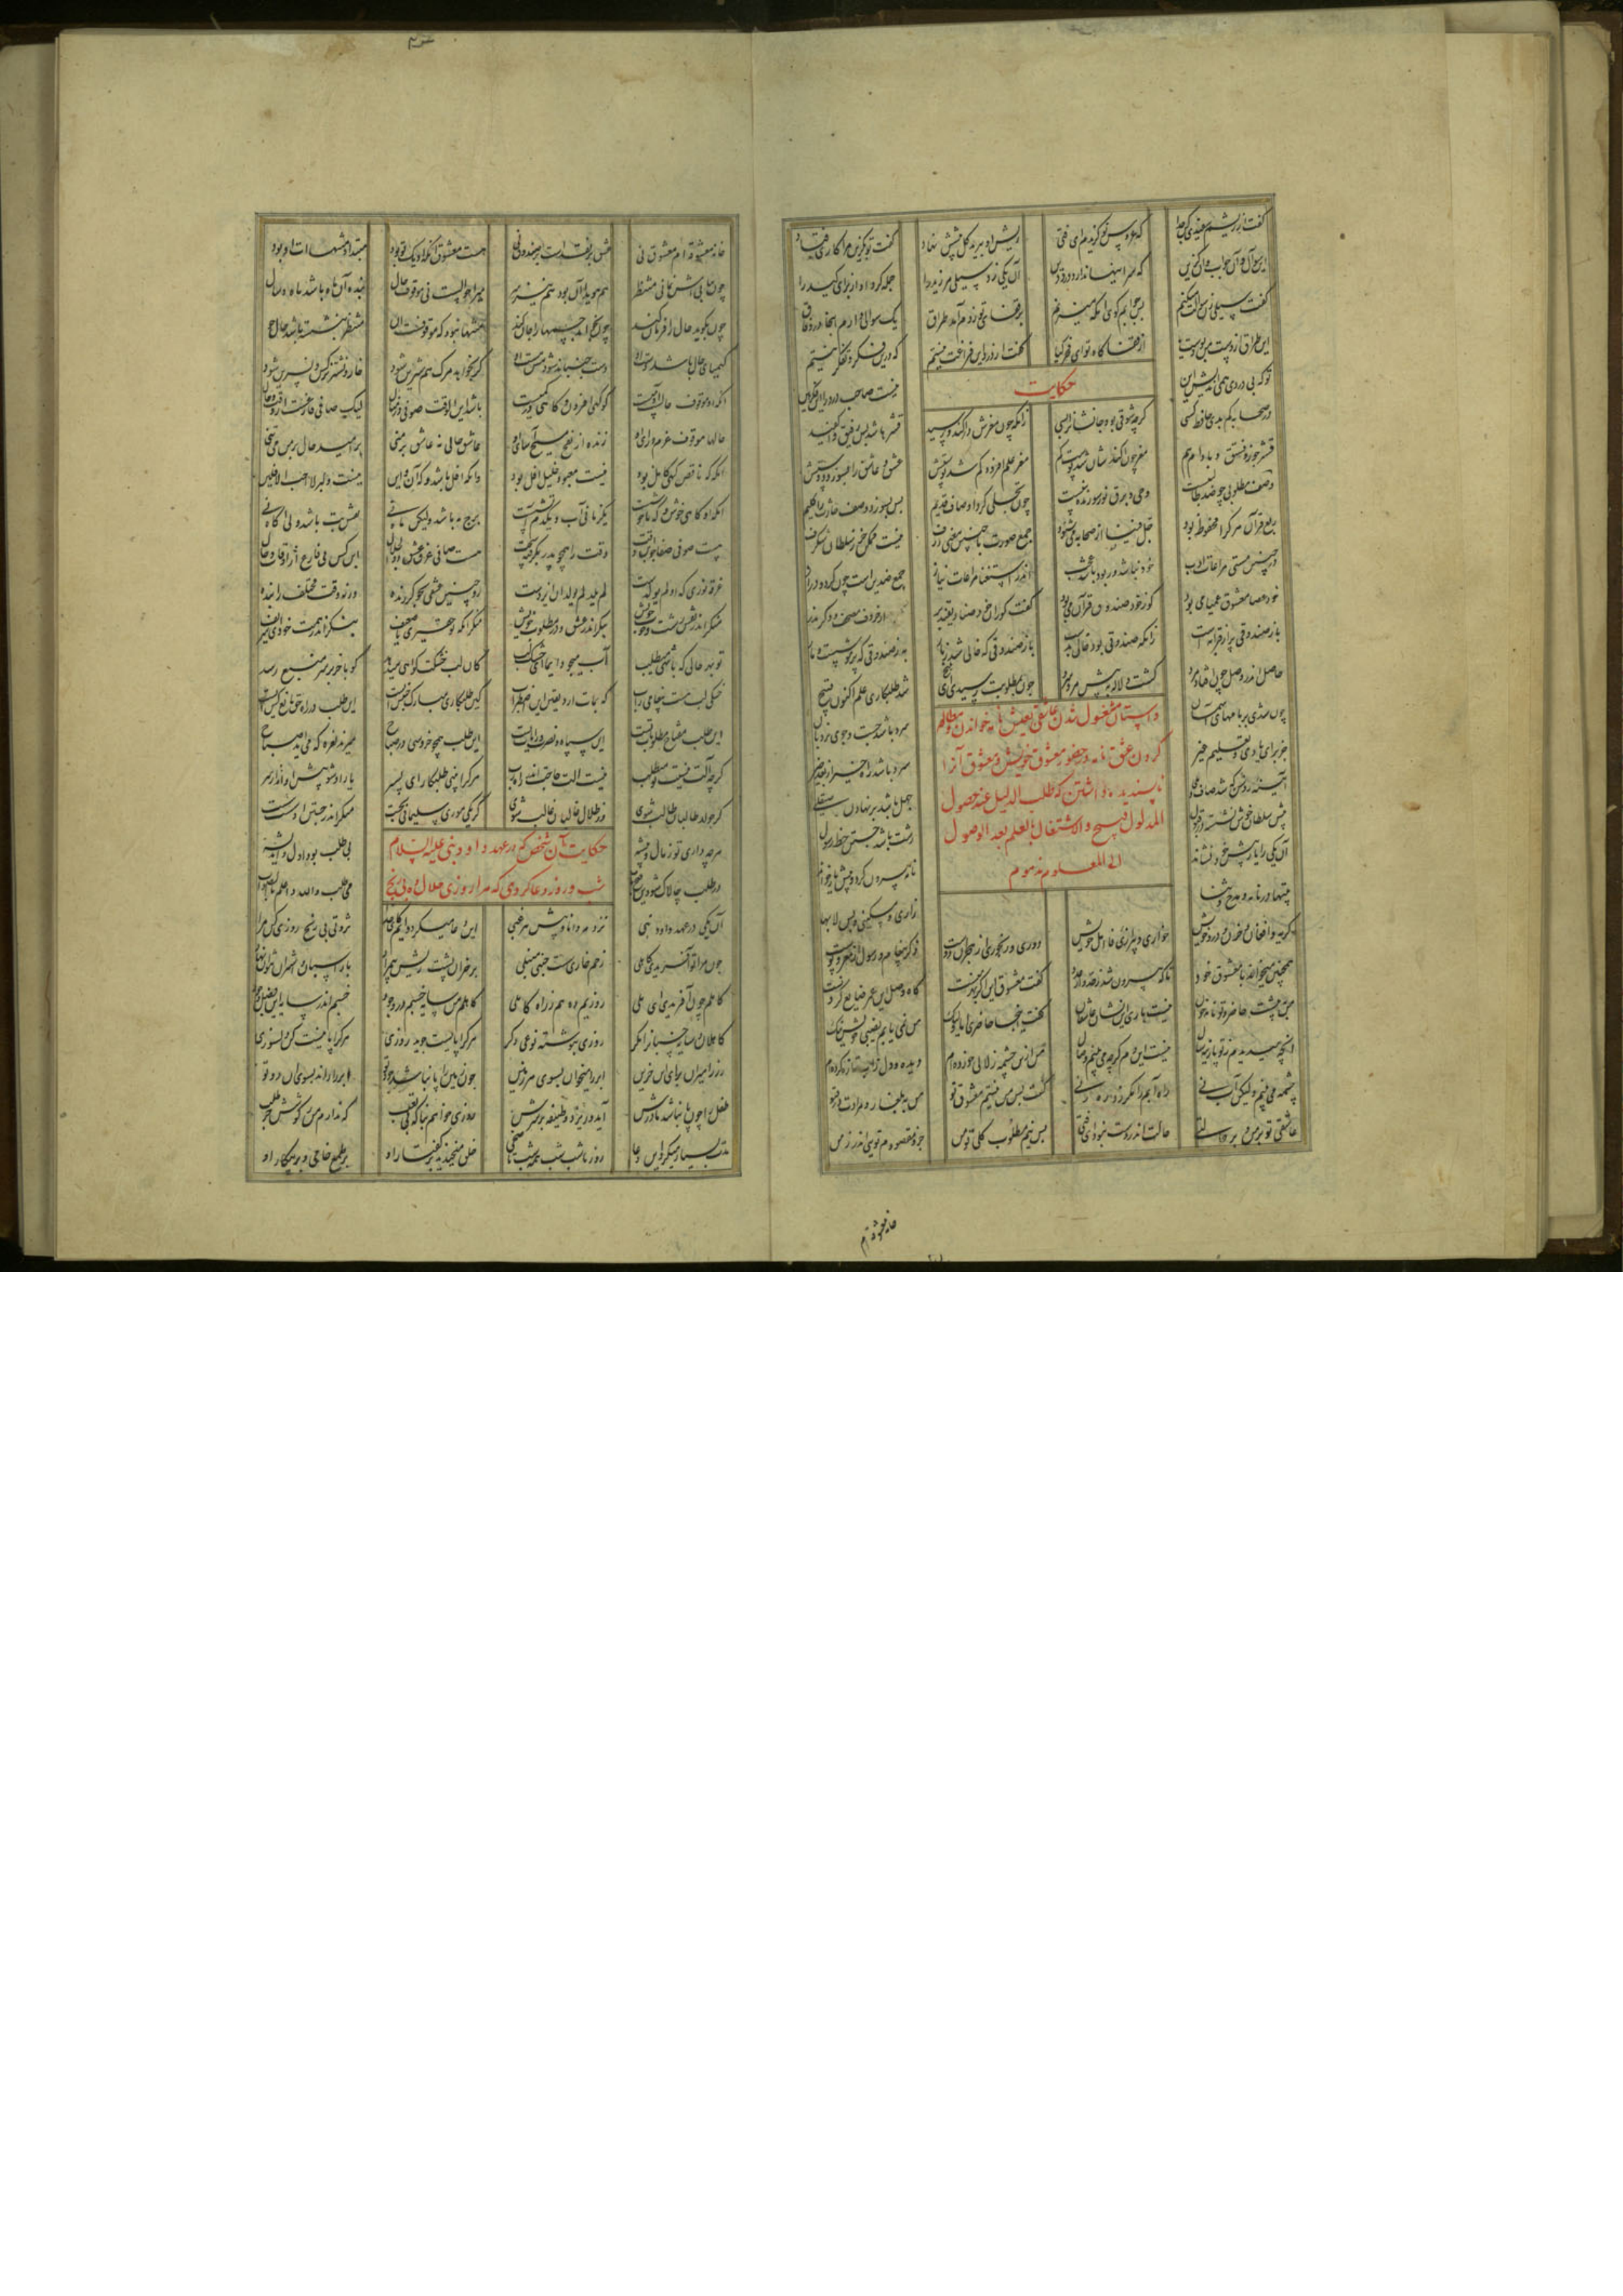 گفت از ریشم سفیدی کن جدا که عروس نو گزیدم ای فتی ریش او ببرید کل پیشش نهاد گفت تو بگزین مرا کاری فتاد
این سؤال و آن جواب است آن گزین که سر اینها ندارد درد دین آن یکی زد سیلیی مر زید را حمله کرد او از برای کید را
گفت سیلی زن سؤالت میکنم پس جوابم گوی وانگه میزنم بر قفای تو زدم آمد طراق یک سوالی دارم اینجا در وفاق
این طراق از دست من بودست یا از قفا گاه تو ای فخر کیا گفت از درد این فراغت نیستم که درین فکر و تفکر بیستم
تو که بی دردی همی اندیش این نیست صاحب درد را این فکر هین
حکایت
در صحابه کم بدی حافظ کسی گرچه شوقی بود جانشانرا بسی زانکه چون مغزش در آکند و رسید قشرها شد بس رقیق و واکفید
قشر جوز و فستق و بادام هم مغز چون آکندشان شد پوست کم مغز علم افزود کم شد پوستش عشق و عاشق را بسوزد دوستش
وصف مطلوبی چو ضد طالبیست وحی و برق نور سوزنده نبیست چون تجلی کرد اوصاف قدیم پس بسوزد وصف حادث را گلیم
ربع قرآن هر کرا محفوظ بود جل فینا از صحابه می شنود جمع صورت با چنین معنی ژرف نیست ممکن جز ز سلطان شگرف
در چنین مستی مراعات ادب خود نباشد ور بود باشد عجب اندر استغنا مراعات نیاز جمع ضدین است چون گرد و دراز
خود عصا معشوق عمیان می بود کور خود صندوق قرآن می بود گفت کوران خود صنادیقند پر از حروف مصحف و ذکر و نذر
باز صندوقی پر از قرآن به است زانکه صندوقی بود خالی بدست باز صندوقی که خالی شد ز بار به ز صندوقی که پر موشست و مار
حاصل اندر وصل چون افتاد مرد گشت دلاله به پیش مرد سرد چون بمطلوبت رسیدی ای ملیح شد طلبکاری علم اکنون قبیح
داستان مشغول شدن عاشقی بعشق نامه خواندن و مطالعه
کردن عشق نامه در حضور معشوق خویش و معشوق آنرا
ناپسندیده داشتن که طلب الدلیل عند حصول
المدلول قبیح والاشتغال بالعلم بعد الوصول
الی المعلوم مذموم
چون شدی بر بامهای آسمان سرد باشد جست و جوی نردبان
جز برای یاری و تعلیم غیر سرد باشد راه خیر از بعد خیر
آینه روشن که شد صاف و جلی جهل باشد بر نهادن صیقلی
پیش سلطان خوش نشسته در قبول زشت باشد جستن خط و رسول
آن یکی را یار پیش خود نشاند نامه بیرون کرد و پیش یار خواند
بیتها در نامه و مدح و ثنا زاری و مسکینی و بس لابها
گریه و افغان و حزن و درد خویش خواری و اهل خویش دوری و رنجوری از هجران دوست ذکر پیغام و رسول از مغز و پوست
همچنین میخواند با معشوق خود تا که بیرون شد ز حد و از عدد گفت معشوق این اگر بهر منست گاه وصل این عمر ضایع کردنست
من به پیشت حاضر و تو نامه خوان نیست باری این نشان عاشقان گفت اینجا حاضری اما ولیک من نمی یابم نصیب خویش نیک
آنچه میدیدم ز تو پارینه سال نیست این دم گرچه می بینم وصال من ازین چشمه زلالی خورده ام دیده و دل ز آب تازه کرده ام
چشمه می بینم ولیکن آب نی راه آبم را مگر زد ره زنی گفت پس من نیستم معشوق تو من ببلغار و مرادت در قتو
عاشقی تو بر من و بر حالتی حالت اندر دست نبود ای فتی پس نیم مطلوب کلی تو من جزو مقصودم توی اندر زمن
خانه معشوقه ام
خانه معشوقه ام معشوق نی عشق بر نقدست بر صندوق نی هست معشوق آنکه او یک تو بود مبتدا و منتهاات او بود
چون بیابی اش نمانی منتظر هم هویدا آن بود هم نیز سر میر احوالست نی موقوف حال بنده آن ماه باشد ماه و سال
چون بگوید حال را فرمان کند چون بخواهد جسمها را جان کند منتها نبود که موقوفست آن منتظر بنشسته باشد حال جو
کیمیای حال باشد دست او دست جنباند شود مس مست او گر بخواهد مرگ هم شیرین شود خار و نشتر نرگس و نسرین شود
آنکه او موقوف حالست آدمیست کو گهی افزون و گاهی در کمیست باشد ابن الوقت صوفی در مثال لیک صافی فارغست از وقت و حال
حالها موقوف عزم و رای او زنده از نفخ مسیح آسای او عاشق حالی نه عاشق بر منی بر امید حال بر من می تنی
آنکه گه ناقص گهی کامل بود نیست معبود خلیل آفل بود وانکه آفل باشد و گه آن و این نیست دلبر لا احب الافلین
آنکه او گاهی خوش و گه ناخوشست یکزمانی آب و یکدم آتشست برج مه باشد ولیکن ماه نی نقش بت باشد ولی آگاه نی
هست صوفی صفاجو ابن وقت وقت را همچو پدر بگرفته سخت هست صافی غرق عشق ذوالجلال ابن کس نی فارغ از اوقات و حال
غرقه نوری که او لم یولدست لم یلد لم یولد آن ایزدست رو چنین عشقی بجو گر زنده ورنه وقت مختلف را بنده
منگر اندر نقش زشت و خوب خویش بنگر اندر عشق و در مطلوب خویش منگر آنکه تو حقیری یا ضعیف بنگر اندر همت خود ای شریف
تو بهر حالی که باشی می طلب آب میجو دایما ای خشک لب کان لب خشکت گواهی میدهد کو بآخر بر سر منبع رسد
خشکی لب هست پیغامی ز آب که بمات آرد یقین این اضطراب کین طلبکاری مبارک جنبشیست این طلب در راه حق مانع کشیست
این طلب مفتاح مطلوبات تست این سپاه و نصرت رایات تست این طلب همچو خروسی در صباح میزند نعره که می آید صباح
گرچه آلت نیستت تو می طلب نیست آلت حاجت اندر راه رب هر کرا بینی طلبکار ای پسر یار او شو پیش او انداز سر
کز جوار طالبان طالب شوی وز ظلال غالبان غالب شوی گر یکی موری سلیمانی بجست منگر اندر جستن او سست سست
هرچه داری تو ز مال و پیشه نی طلب بود اول و اندیشه
حکایت آن شخص که در عهد داود نبی علیه السلام
شب و روز دعا کردی که مرا روزی حلال ده بی رنج
آن یکی در عهد داود نبی نزد هر دانا و پیش هر غبی این دعا میکرد دایم کای خدا ثروتی بی رنج روزی کن مرا
چون مرا تو آفریدی کاهلی زخم خواری سست جنبی منبلی بر خران پشت ریش بی مراد بار اسپان و اشتران نتوان نهاد
کاهلم چون آفریدی ای ملی روزیم ده هم ز راه کاهلی کاهلم من سایه خسپم در وجود خفتم اندر سایه این فضل و جود
کاهلان و سایه خسپانرا مگر روزیی بنوشته نوعی دگر هر کرا پایست جوید روزی هر کرا پا نیست کن دلسوزی
رزق را میران بسوی این حزین ابر را میران بسوی هر زمین چون زمین را پا نباشد جود تو ابر را راند بسوی او دو تو
طفل را چون پا نباشد مادرش آید و ریزد وظیفه بر سرش روزی خواهم بناگه بی تعب که ندارم من ز کوشش جز طلب
مدت بسیار میکرد این دعا روز تا شب شب همه شب تا ضحی خلق میخندید بر گفتار او بر طمع خامی و بر پیکار او